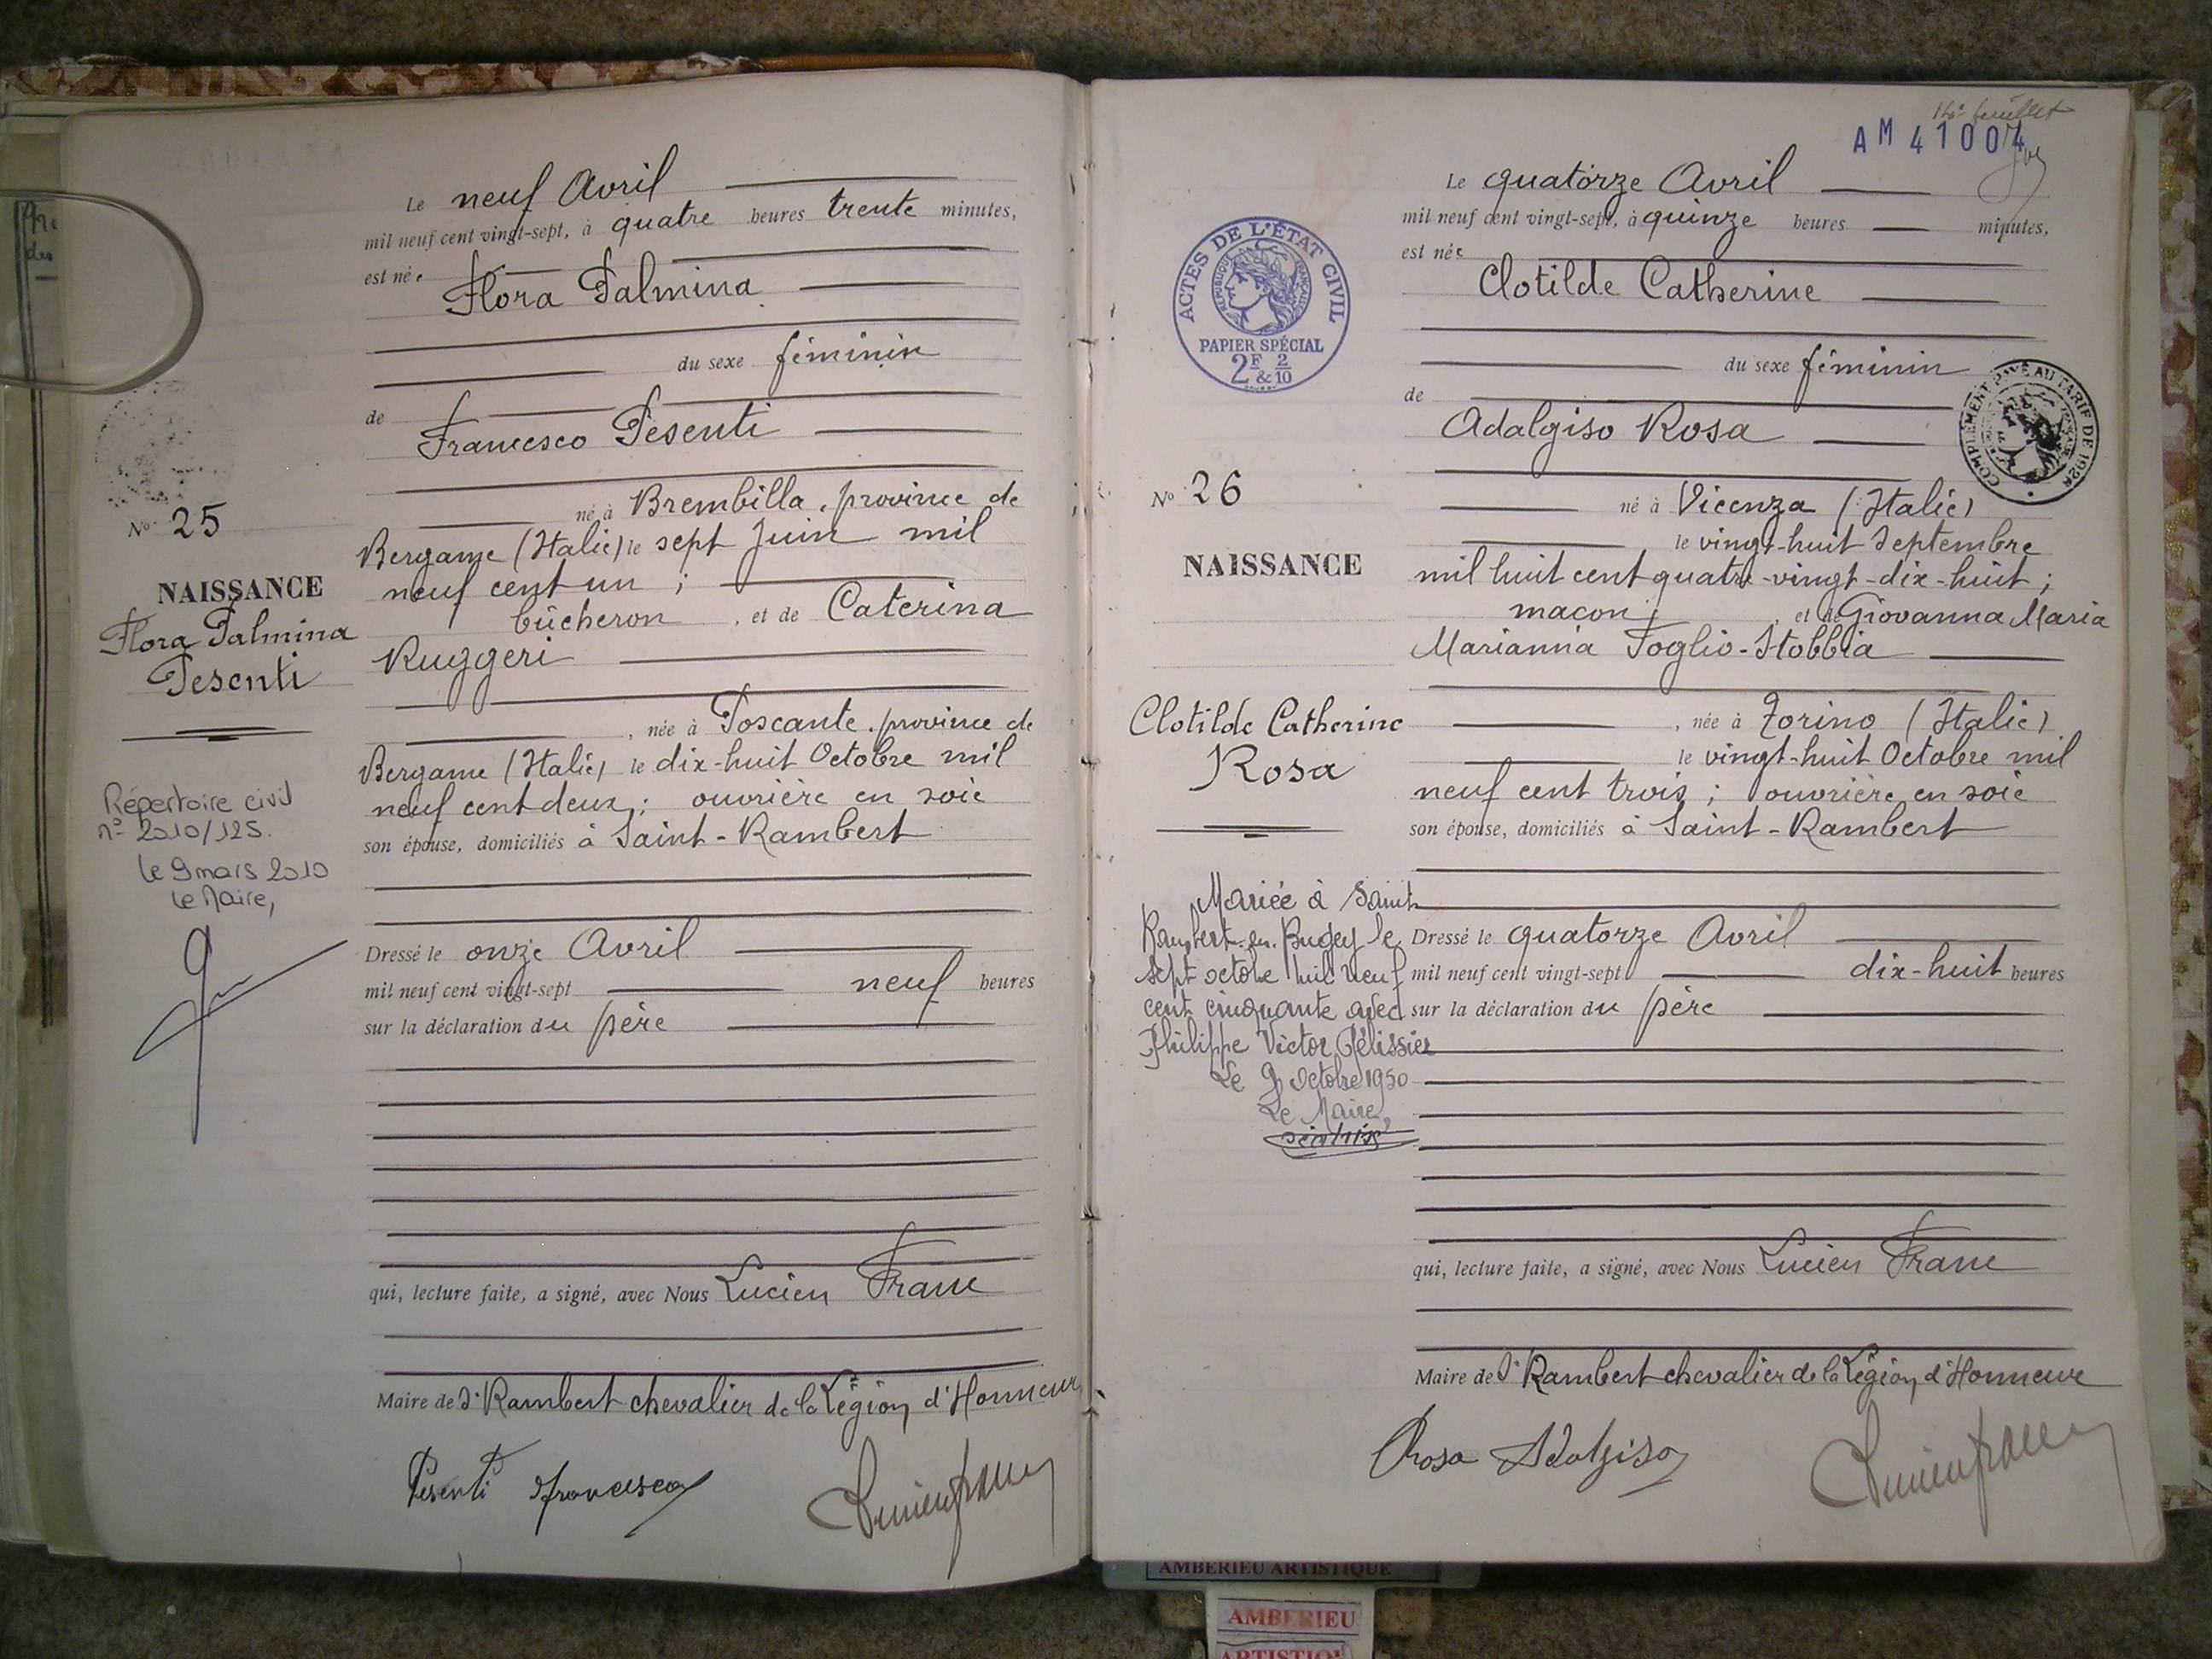 Le neuf Avril
mil neuf cent vingt-sept, à quatre heures trente minutes,
est née
Flora Palmina
du sexe féminin
de
Francesco Pesenti
né à Brembilla, province de
Bergame (Italie) le sept Juin mil
neuf cent un ;
bûcheron, et de Caterina
Ruggeri
, née à Poscante, province de
Bergame (Italie) le dix-huit Octobre mil
neuf cent deux ; ouvrière en soie
son épouse, domiciliés à Saint-Rambert
Dressé le onze Avril
mil neuf cent vingt-sept neuf heures
sur la déclaration du père
qui, lecture faite, a signé, avec Nous Lucien Franc
Maire de St Rambert chevalier de la Légion d'Honneur
Pesenti Francesco
Lucien franc
No 25
NAISSANCE
Flora Palmina
Pesenti
Répertoire civil
no 2010/125.
le 9 mars 2010
Le Maire,
16e feuillet
AM 41004
Le quatorze Avril
mil neuf cent vingt-sept, à quinze heures minutes,
est née
Clotilde Catherine
du sexe féminin
de
Adalgiso Rosa
né à Vicenza (Italie)
le vingt-huit Septembre
mil huit cent quatre-vingt-dix-huit ;
maçon, et de Giovanna Maria
Marianna Foglio-Stobbia
, née à Torino (Italie)
le vingt-huit Octobre mil
neuf cent trois ; ouvrière en soie
son épouse, domiciliés à Saint-Rambert
Dressé le quatorze Avril
mil neuf cent vingt-sept dix-huit heures
sur la déclaration du père
qui, lecture faite, a signé, avec Nous Lucien Franc
Maire de St Rambert chevalier de la Légion d'Honneur
Rosa Adalgiso
Lucien franc
ACTES DE L'ÉTAT CIVIL
RÉPUBLIQUE FRANÇAISE
PAPIER SPÉCIAL
2F & 2/10
COMPLÉMENT PAYÉ AU TARIF DE 192
No 26
NAISSANCE
Clotilde Catherine
Rosa
Mariée à Saint
Rambert-en-Bugey le
sept octobre mil neuf
cent cinquante avec
Philippe Victor Pélissier
Le 9 Octobre 1950
Le Maire,
AMBERIEU ARTISTIQUE
AMBERIEU